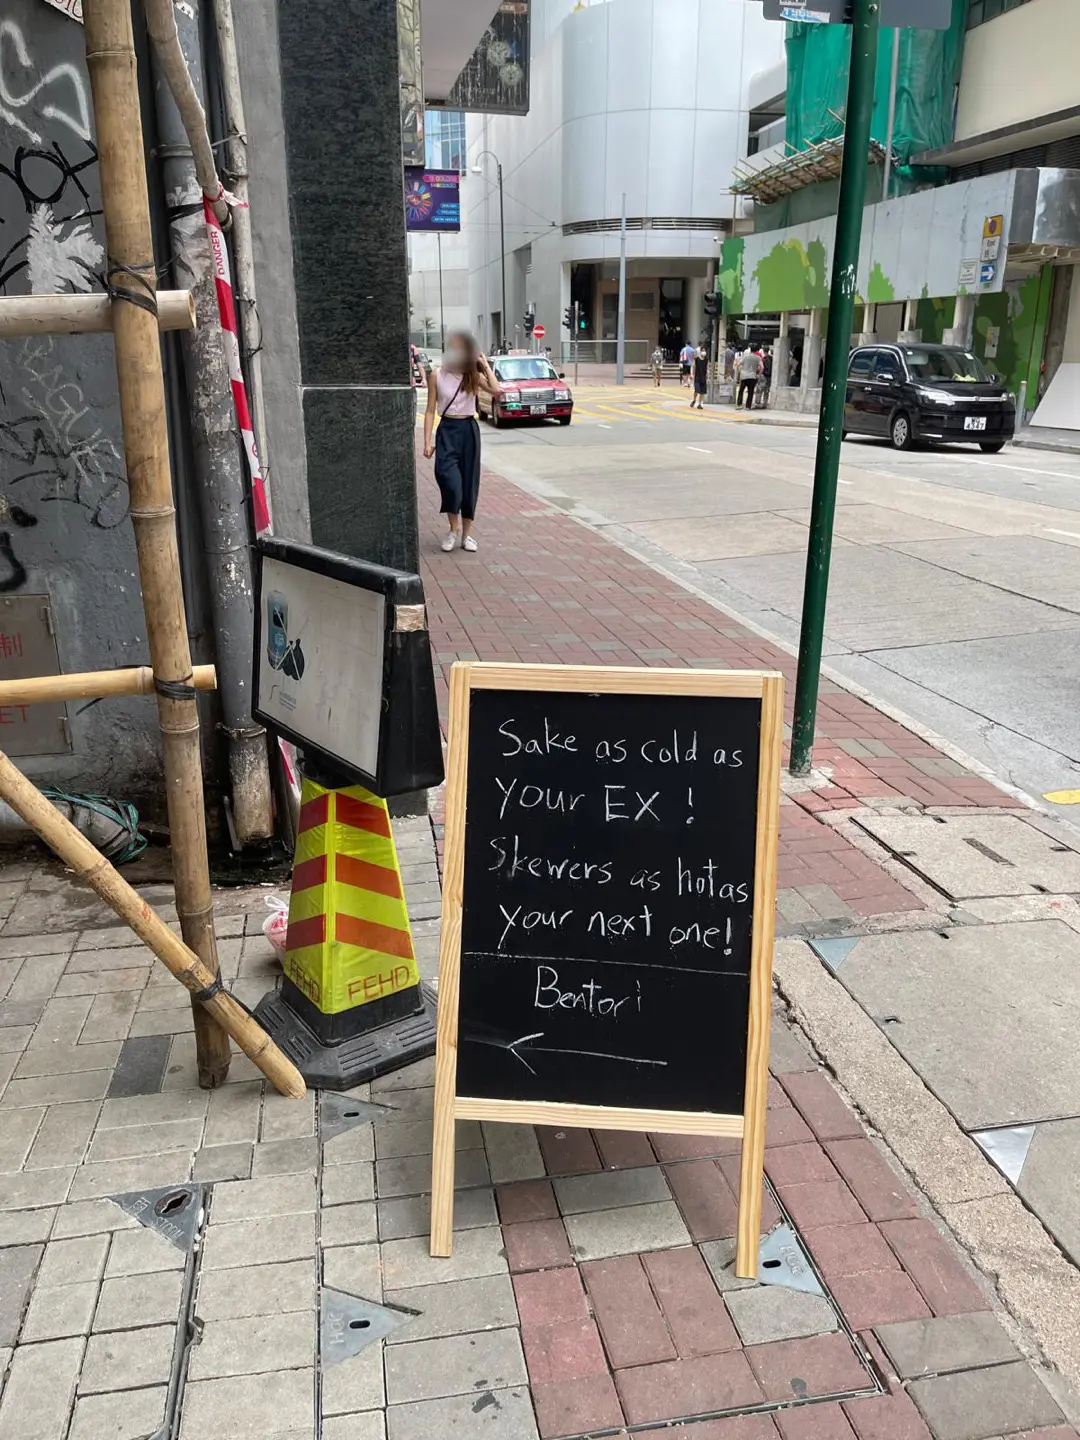 Sake as cold as
your EX !
Skewers as hot as
your next one!
Bentori
FEHD
FEHD
DANGER